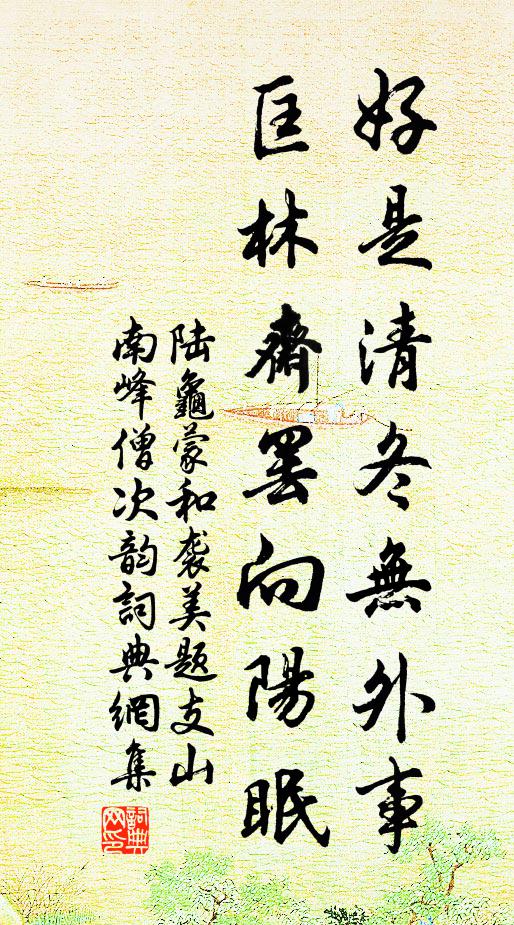 好是清冬無外事
匡林齋罷向陽眠
陸龜蒙和袭美題支山
南峰僧次韵詞典網集
詞典网印